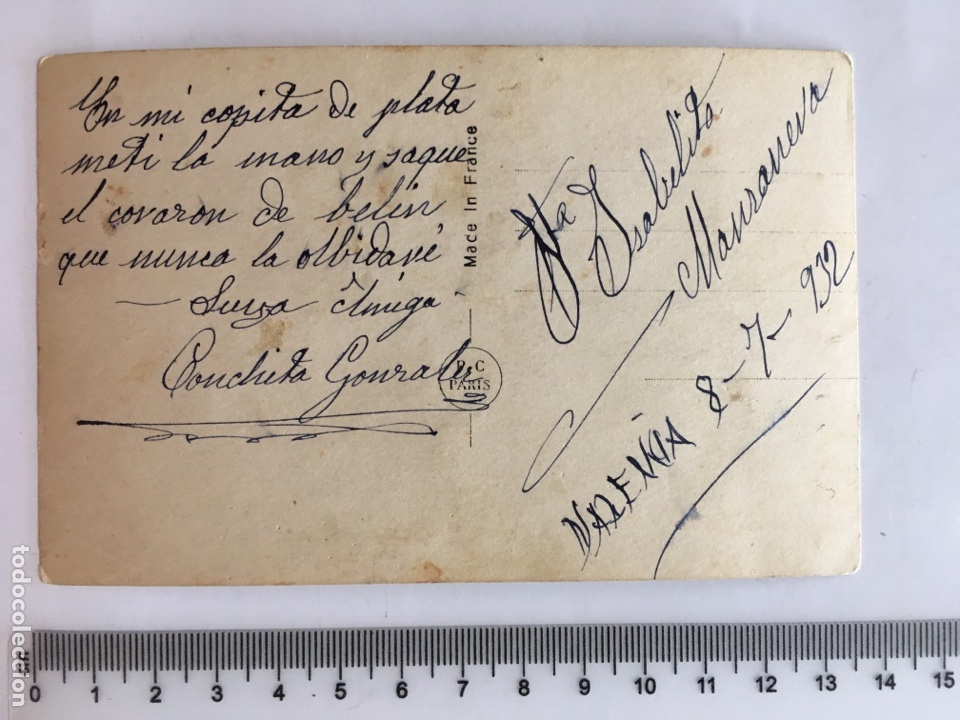 En mi copita de plata
meti la mano y saque
el corazon de belin
que nunca la olbidaré
Suya Amiga
Conchita Gonzales
Mace In France
P.C
PARIS
Sta Isabelita
Manzanera
VALENCIA 8-7-932
todocoleccion
0 1 2 3 4 5 6 7 8 9 10 11 12 13 14 15